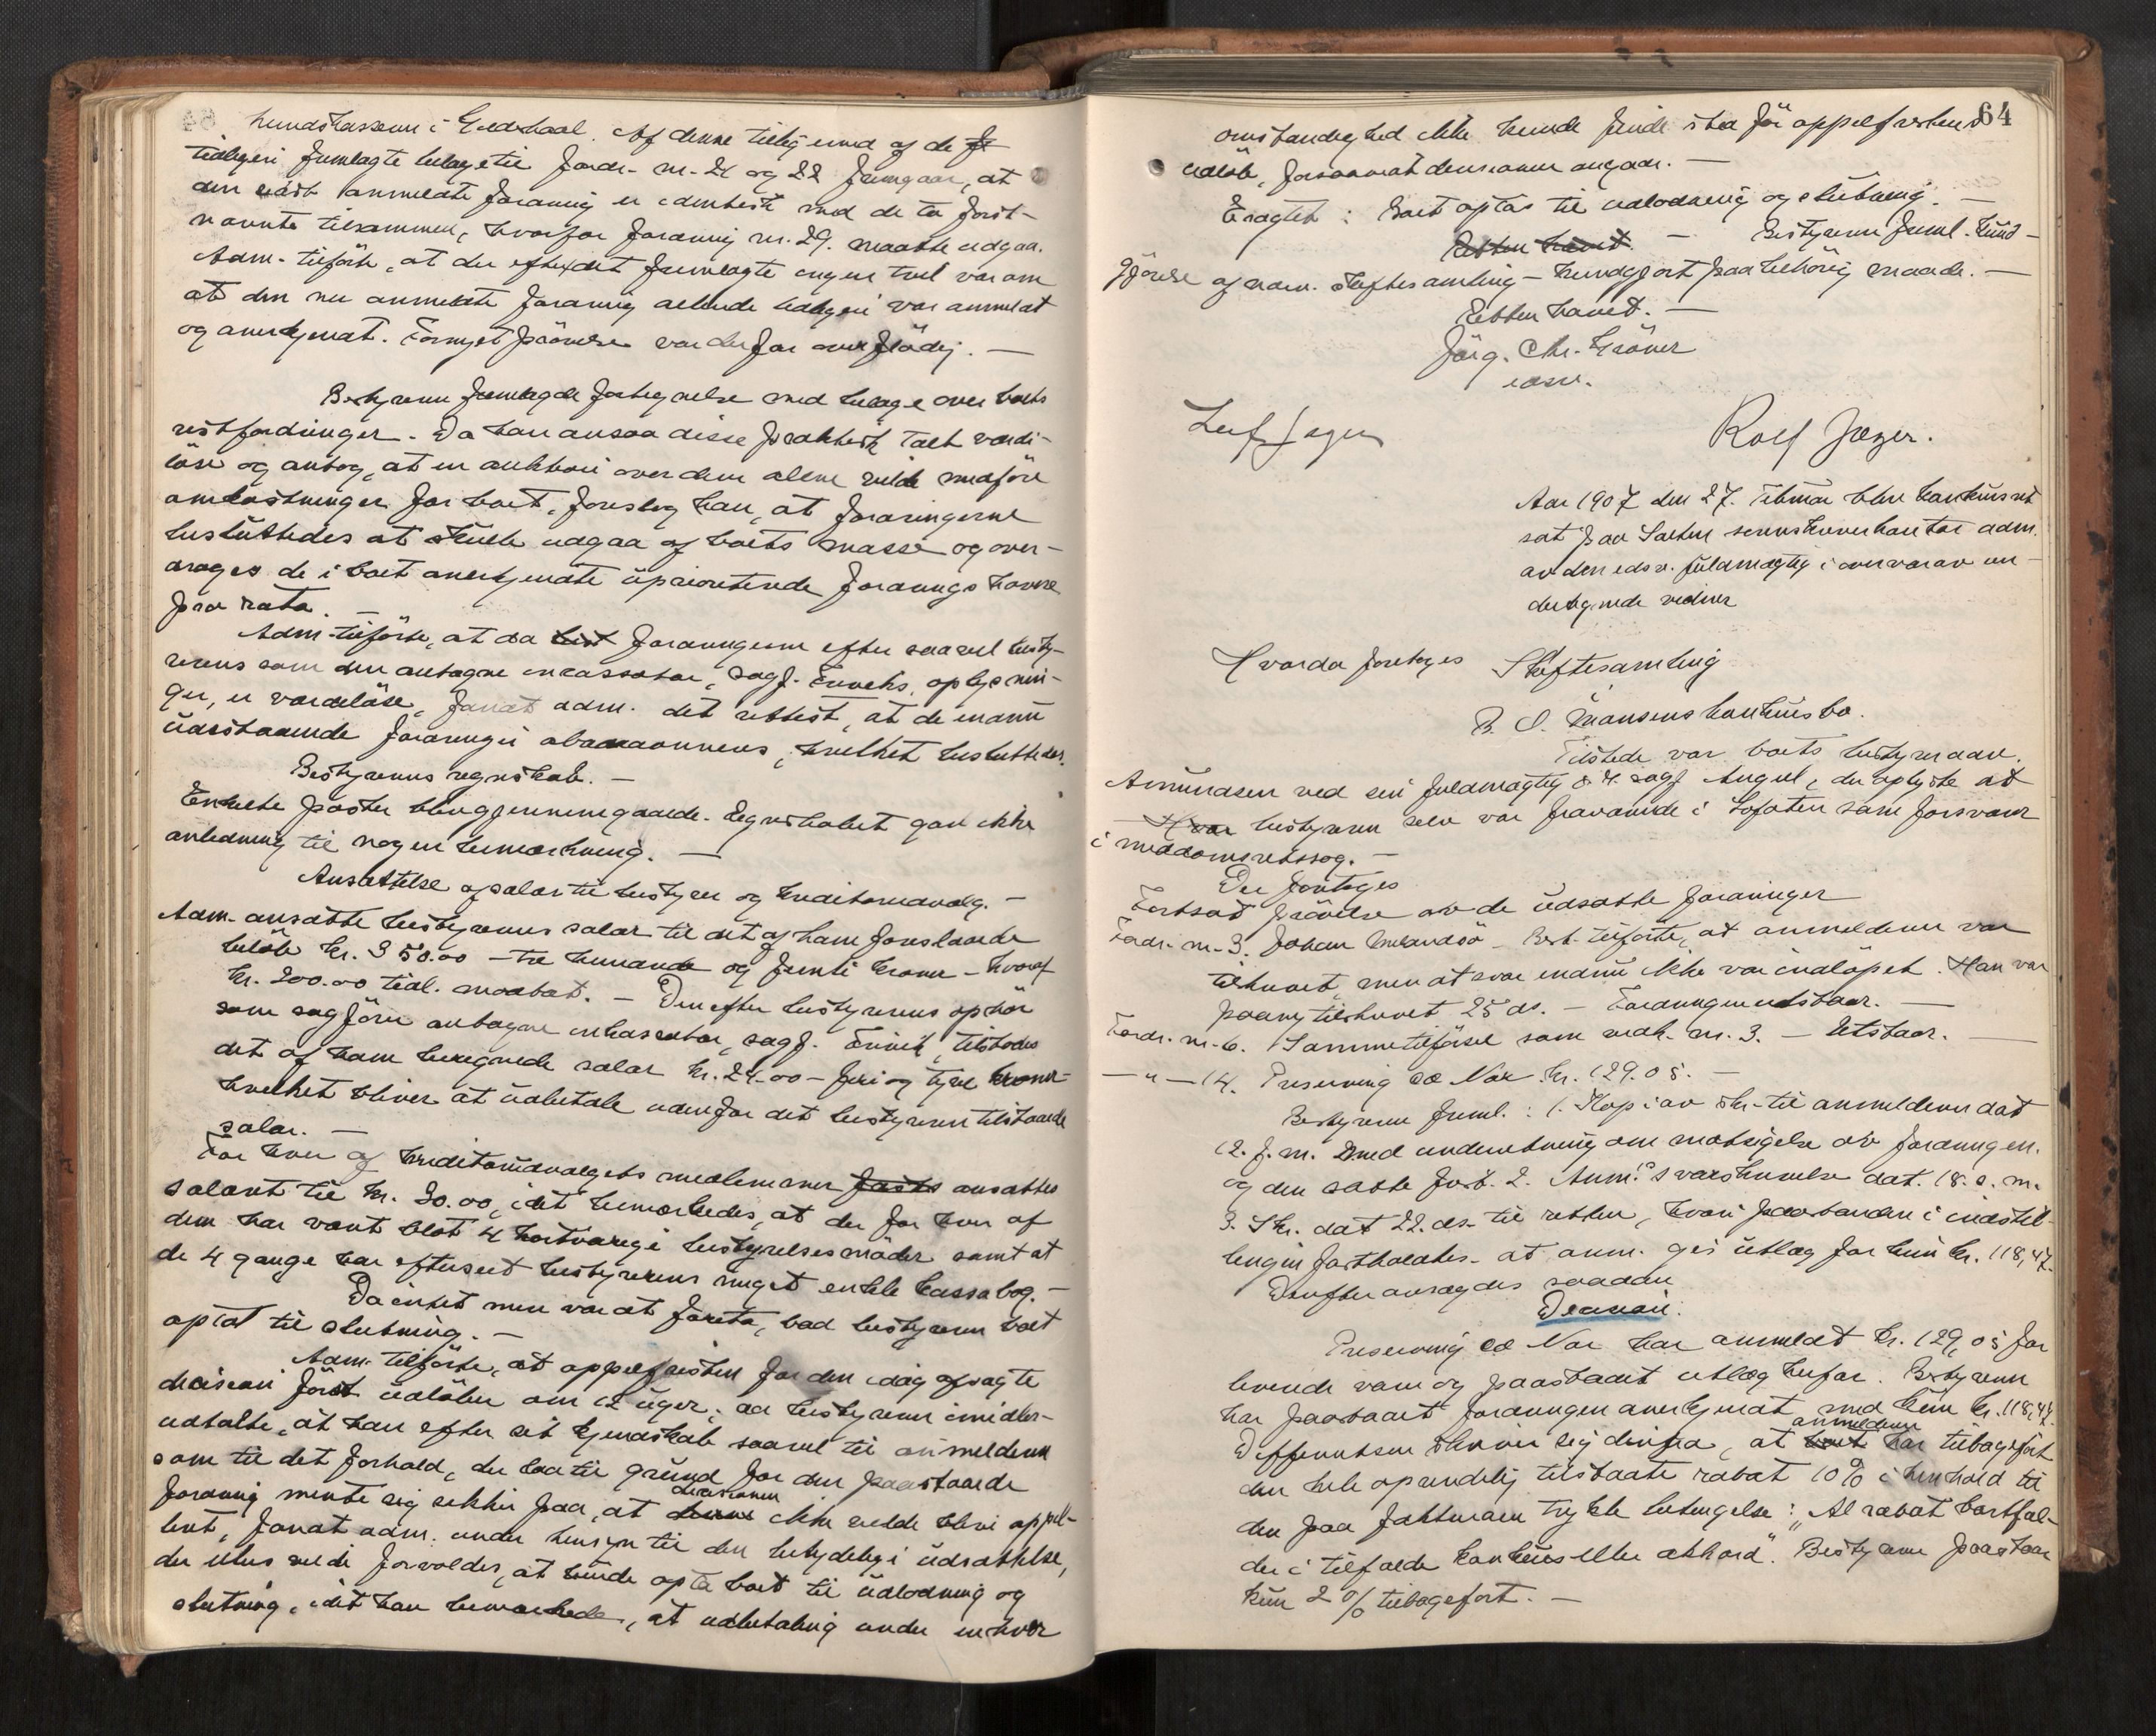 hundskassen i Gredshaal. Af denne tillig med af de
tidligere fremlagte bilage til fordr. nr. 21 og 22 fremgaar, at
den sidst anmeldte fordring er identisk med de to først-
nævnte tilsammen, hvorfor fordring nr. 29. maatte udgaa.
Adm. tilførte, at der efter det fremlagte ingen tvil var om
at den nu anmeldte fordring allerede tidligere var anmeldt
og anerkjendt. Fornyet prøvelse var derfor overflødig. —
Bestyreren fremlagde fortegnelse med bilage over boets
restfordringer. Da han ansaa disse praktisk talt værdi-
løse og antog, at en auktion over dem alene vilde medføre
omkostninger for boet, foreslog han, at fordringerne
besluttedes at skulle udgaa af boets masse og over-
drages de i boet anerkjendte uprioriterede fordringshavere
pro rata. —
Adm. tilførte, at da fordringerne efter saavel besty-
rerens som den antagne incassator, sagf. oplysnin-
ger, er værdiløse, fandt adm. det rettest, at de endnu
udestaaende fordringer abandonneres, hvilket besluttedes.
Bestyrerens regnskab. —
Enkelte poster blev gjennemgaaede. Regnskabet gav ikke
anledning til nogen bemærkning. —
Ansættelse af salær til bestyrer og kreditorudvalg. —
Adm. ansatte bestyrerens salær til det af ham foreslaaede
beløb kr. 350.00 – tre hundrede og femti kroner – hvoraf
kr. 200.00 tidl. modtat. – Den efter bestyrerens ophør
som sagfører antagne inkassator, sagf. tilstodes
det af ham beregnede salær kr. 24.00 – fire og tyve kroner –
hvilket bliver at udbetale udenfor det bestyreren tilstaaede
salær. —
For hver af kreditorudvalgets medlemmer ansattes
salæret til kr. 20.00, idet bemærkedes, at der for hver af
dem har været blot 4 kortvarige bestyrelsesmøder samt at
de 4 gange har efterseet bestyrerens meget enkle kassabog. —
Da intet mere var at foreta, bad bestyreren boet
optat til slutning. —
Adm. tilførte, at appelfristen for den idag afsagte
decision først udløber om 12 uger; da bestyreren imidler-
udtalte, at han efter sit kjendskab saavel til anmelderen
som til det forhold, der laa til grund for den paastaaede
fordring mente sig sikker paa, at decisionen ikke vilde blive appel-
lert, fandt adm. under hensyn til den betydelige udsættelse,
der ellers vilde forvoldes, at kunde opta boet til udlodning og
slutning, idet han bemærkede, at udbetaling under enhver
64
omstændighed ikke kunde finde sted før appelfristens
udløb, forsaavidt decisionen angaar. —
Eragtet: Boet optas til udlodning og slutning. —
Retten hævet. — Bestyreren freml. kund-
gjørelse af nærv. skiftesamling – kundgjort paa behørig maade. —
Retten hævet. —
Jørg. Chr. Grøner
edsv.
Leif Jæger Rolf Jæger.
Aar 1907 den 27. februar blev konkursret
sat paa Salten sorenskriverkontor adm.
av den edsv. fuldmægtig i overvær av un-
dertegnede vidner
Hvorda foretoges Skiftesamling
B. O. Monsens konkursbo.
Tilstede var boets bestyrer adv.
Amundsen ved sin fuldmægtig o.r. sagf. August, der oplyste at
bestyreren selv var fraværende i Lofoten som forsvarer
i meddomsretssag. —
Der foretoges
Fortsat prøvelse av de udsatte fordringer
Fordr. nr. 3. Johan – Best. tilførte, at anmelderen var
tilskrevet, men at svar endnu ikke var indløpet. Han var
paany tilskrevet 25 ds. – Fordringen utstaar. —
Fordr. nr. 6. Samme tilførsel som vedk. nr. 3. – Utstaar. —
— " — 14. Preserving co Nor kr. 129.05. —
Bestyreren freml.: 1. Kopi av skr. til anmelderen dat
12. f. m. med underretning om motsigelse av fordringen.
og den satte frist. 2. Anm.s svarskrivelse dat. 18. s. m.
3. Skr. dat 22. ds. til retten, hvori paastanden i indstil-
lingen fastholdtes – at anm. gis utlæg for kun kr. 118,47.
Derefter avsagdes saadan
Decision:
Preserving co Nor har anmeldt kr. 129,05 for
leverede varer og paastaaet utlæg herfor. Bestyreren
har paastaaet fordringen anerkjendt med kun kr. 118,47.
Differensen skriver sig derfra, at anmelderen har tilbageført
den hele oprindelig tilstaate rabat 10% i henhold til
den paa fakturaen trykte betingelse: „Al rabat bortfal-
der i tilfælde konkurs eller akkord". Bestyreren paastaar
kun 2 % tilbageført. —